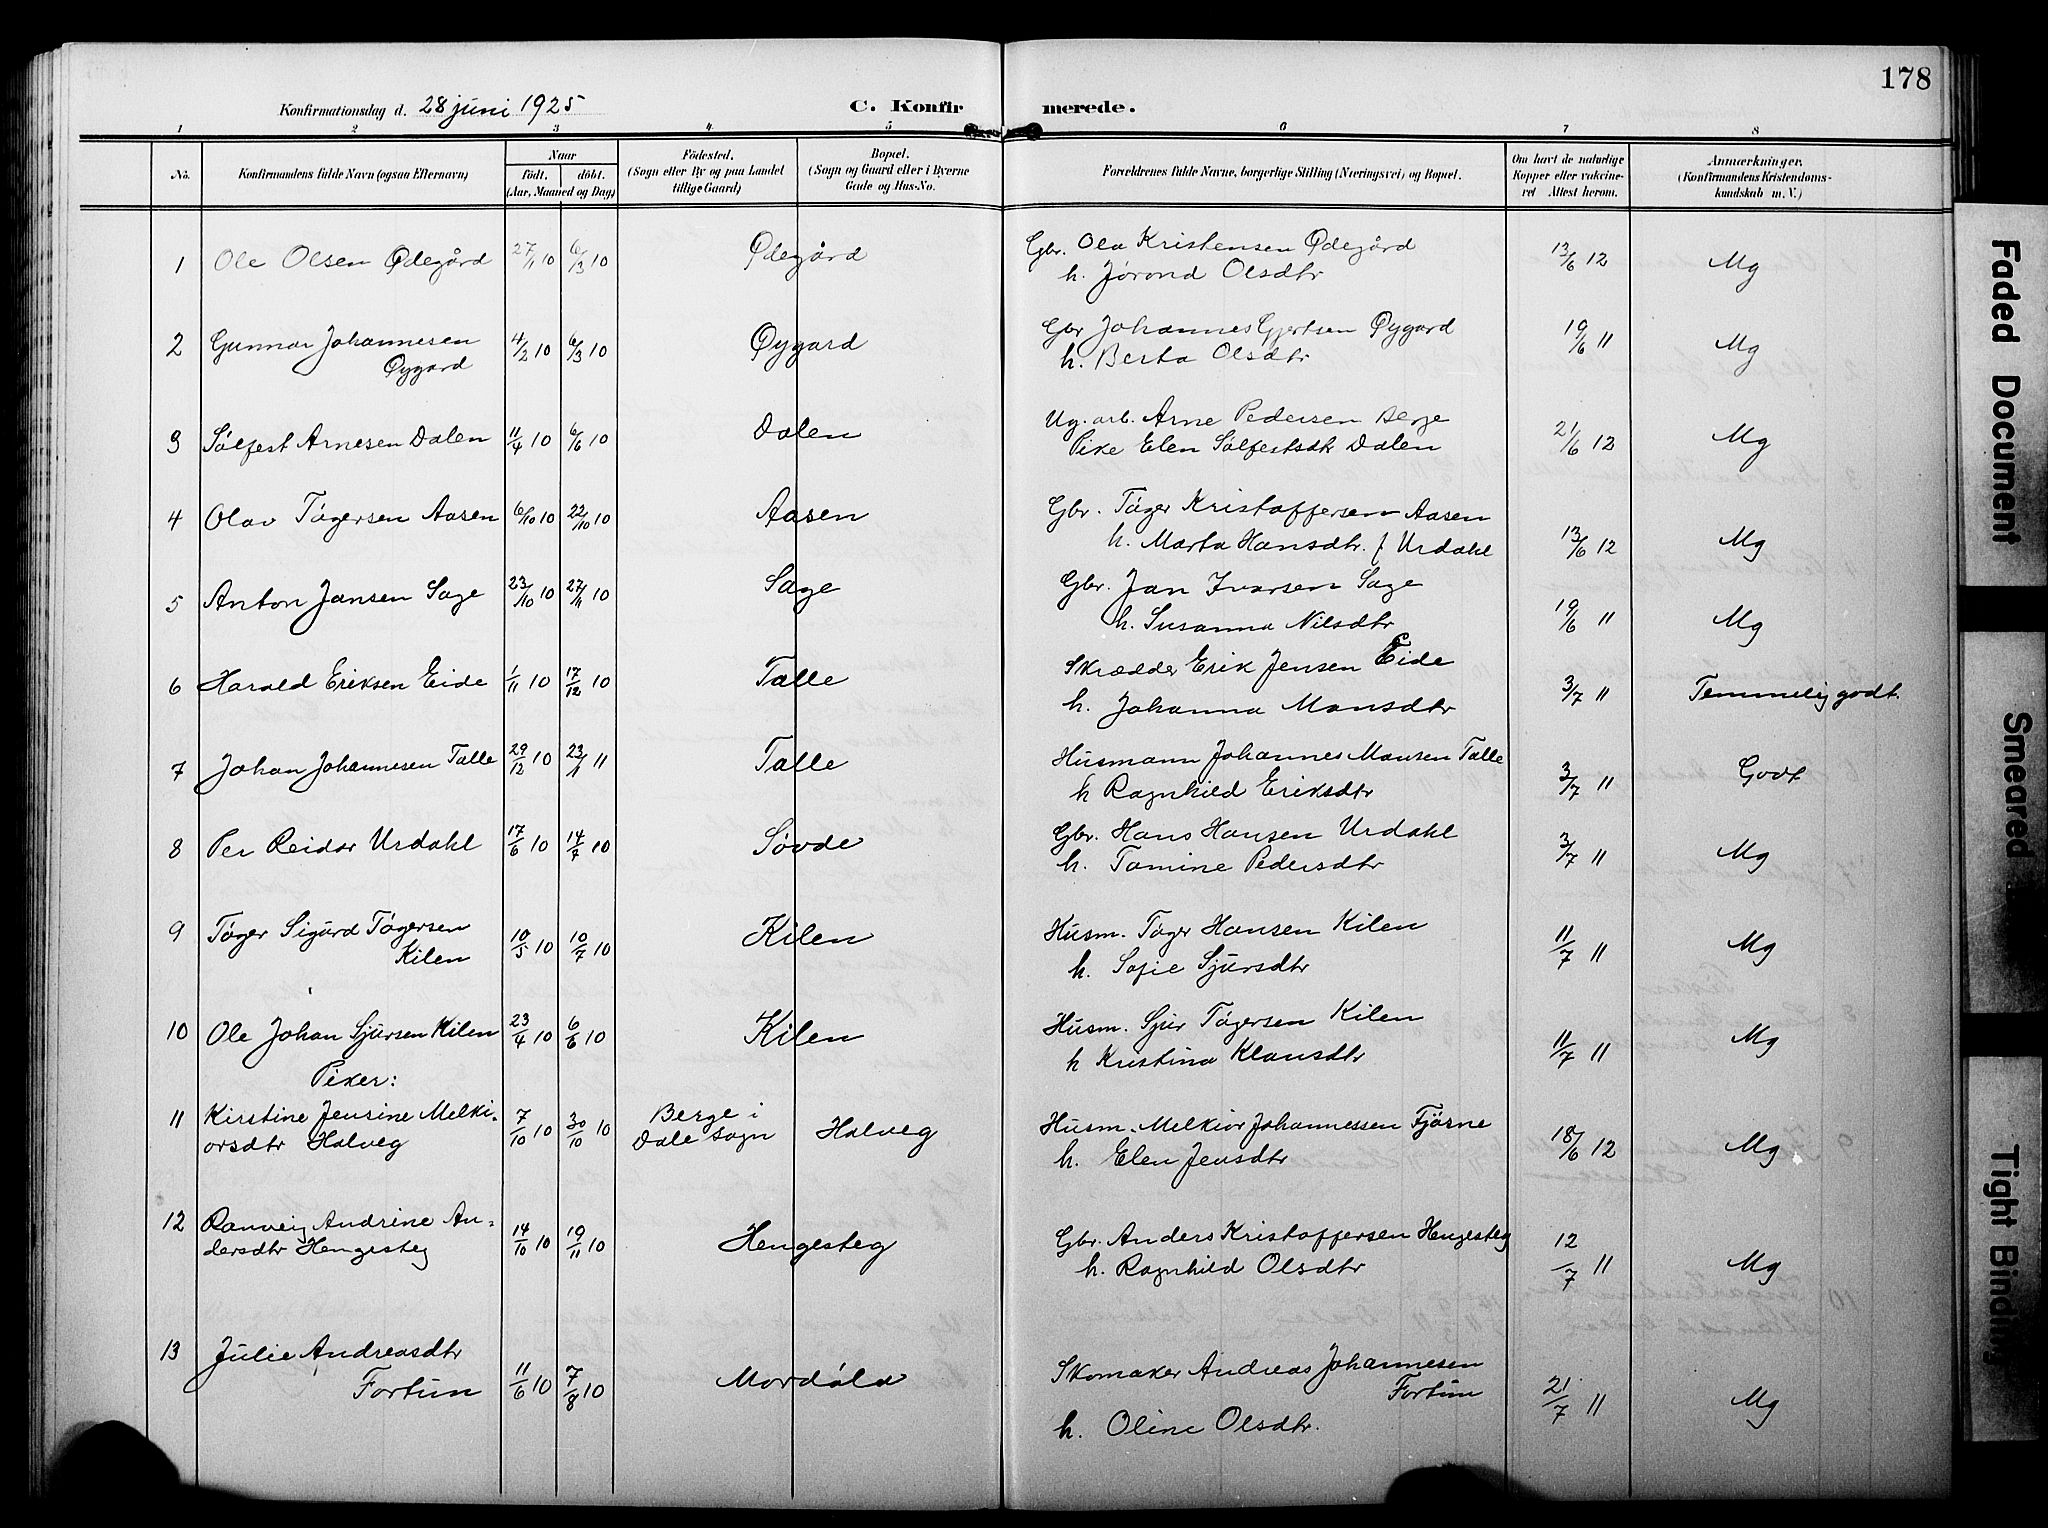 178
Konfirmationsdag d. 28 juni 1925 C. Konfirmerede.
1 2 3 4 5 6 7 8
No. Konfirmandens fulde Navn (ogsaa Efternavn) Naar født. døbt. (Aar, Maaned og Dag) Fødested. (Sogn eller By og paa Landet tillige Gaard) Bopæl. (Sogn og Gaard eller i Byerne Gade og Hus-No. Forældrenes fulde Navne, borgerlige Stilling (Næringsvei) og Bopæl. Om havt de naturlige Kopper eller vaccineret Attest herom. Anmærkninger. (Konfirmandens Kristendomskundskab m. V.)
1 Ole Olsen Ødegård 27/1 10 6/3 10 Ødegård Gbr. Ola Kristensen Ødegård 13/6 12 Mg
h. Jørond Olsdtr
2 Gunnar Johannesen 4/2 10 6/3 10 Øygard Gbr Johannes Gjertsen Øygard 19/6 11 Mg
Øygard h. Berta Olsdtr
3 Sølfest Arnesen Dalen 11/4 10 6/6 10 Dalen Ug. arb. Arne Pedersen Berge 21/6 12 Mg
Pike Elen Sølfestsdtr Dalen
4 Olav Tøgersen Aasen 6/10 10 22/10 10 Aasen Gbr. Tøger Kristoffersen Aasen 13/6 12 Mg
h. Marta Hansdtr. f Urdahl
5 Anton Jansen Sage 23/10 10 27/11 10 Sage Gbr. Jan Ivarsen Sage 19/6 11 Mg
h. Susanna Nilsdtr
6 Harald Eriksen Eide 1/11 10 17/12 10 Talle Skrædder Erik Jensen Eide 3/7 11 Temmelig godt.
h. Johanna Monsdtr
7 Johan Johannesen Talle 29/12 10 23/1 11 Talle Husmann Johannes Monsen Talle 3/7 11 Godt
h Ragnhild Eriksdtr
8 Per Reidar Urdahl 17/6 10 14/7 10 Søvde Gbr. Hans Hansen Urdahl 3/7 11 Mg
h. Tomine Pedersdtr
9 Tøger Sigurd Tøgersen 10/5 10 10/7 10 Kilen Husm. Tøger Hansen Kilen 11/7 11 Mg
Kilen h. Sofie Sjursdtr
10 Ole Johan Sjursen Kilen 23/4 10 6/6 10 Kilen Husm. Sjur Tøgersen Kilen 11/7 11 Mg
h Kristina Klausdtr
Piker:
11 Kirstine Jensine Melki- 7/10 10 30/10 10 Berge i Dale sogn Halveg Husm. Melkior Johannessen Fjørne 18/6 12 Mg
orsdtr Halveg h. Elen Jensdtr
12 Ranveig Andrine An- 14/10 10 19/11 10 Hengesteg Gbr. Anders Kristoffersen Hengesteg 12/7 11 Mg
dersdtr Hengesteg h. Ragnhild Olsdtr
13 Julie Andreasdtr 11/6 10 7/8 10 Mordøla Skomaker Andreas Johannesen 21/7 11 Mg
Fortun Fortun
h. Oline Olsdtr.
Faded Document
Smeared
Tight Binding